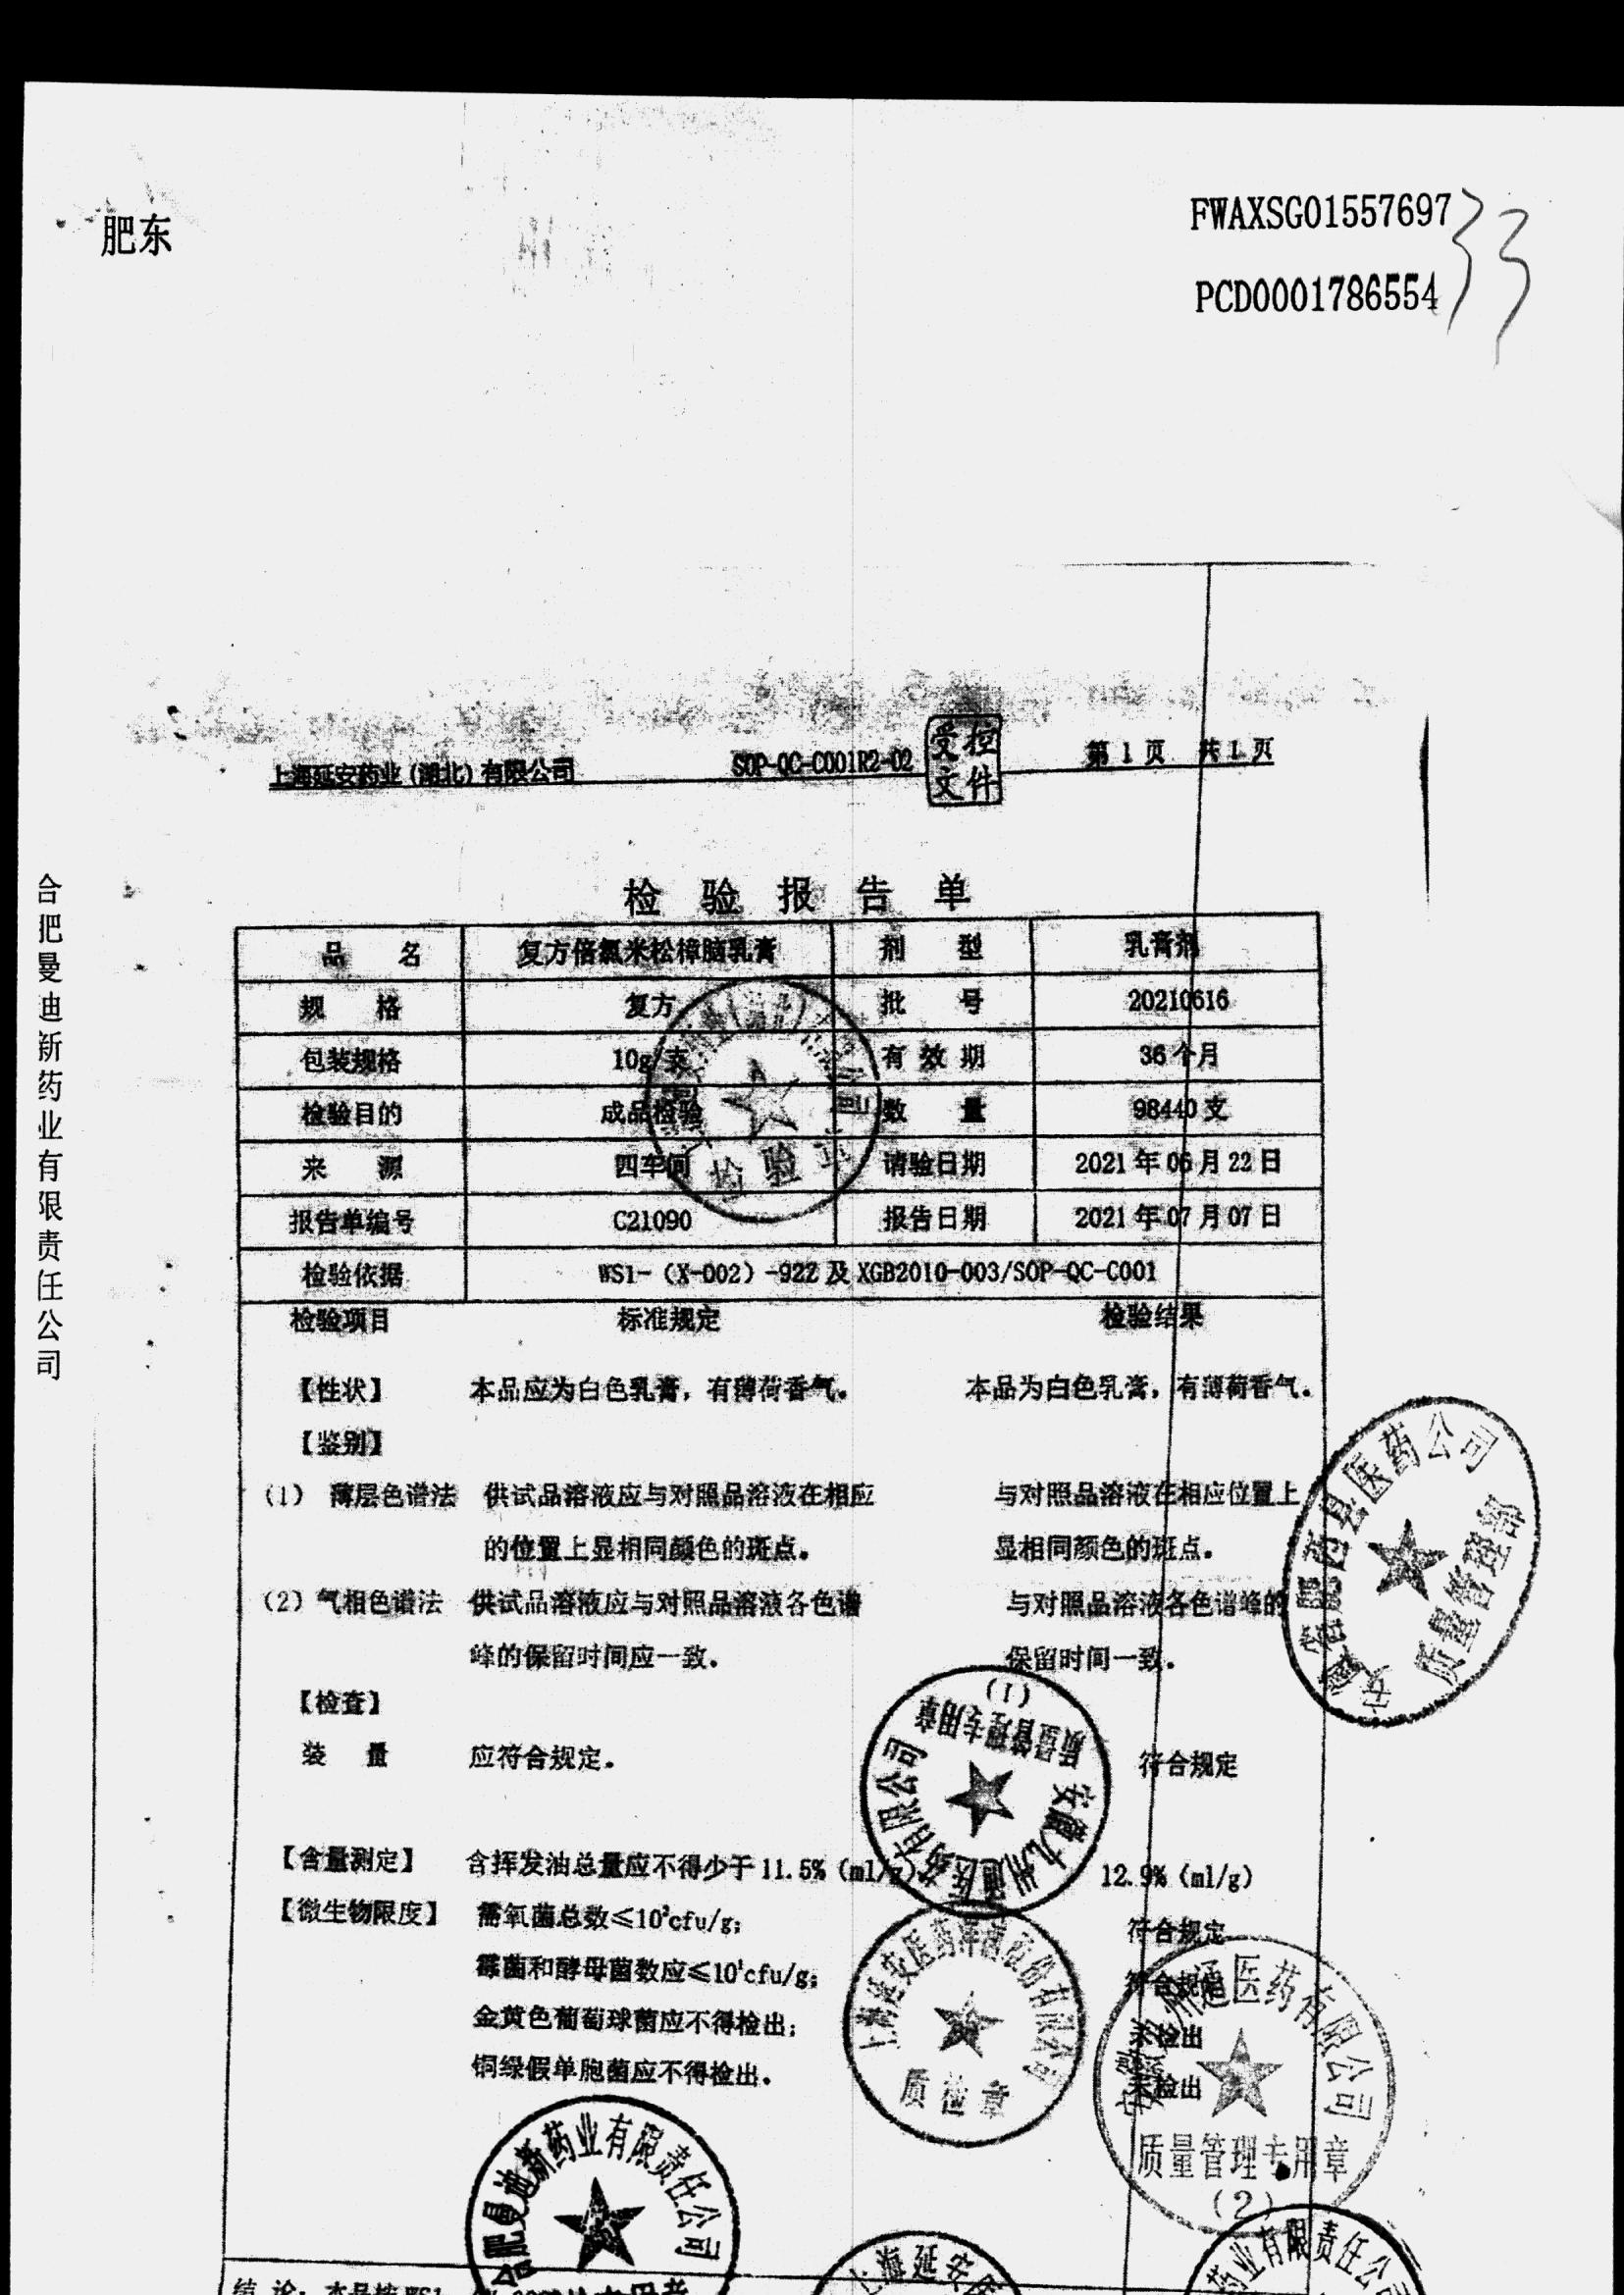 肥东
FWAXSG01557697
33
PCD0001786554
合肥曼迪新药业有限责任公司
上海延安药业(湖北)有限公司 SOP-QC-C001R2-02 受控文件 第1页 共1页
检验报告单
品名 复方倍氯米松樟脑乳膏 剂型 乳膏剂
规格 复方 批号 20210616
包装规格 10g/支 有效期 36个月
检验目的 成品检验 数量 98440支
来源 四车间 请验日期 2021年06月22日
报告单编号 C21090 报告日期 2021年07月07日
检验依据 WS1-(X-002)-92Z及XGB2010-003/SOP-QC-C001
检验项目 标准规定 检验结果
【性状】 本品应为白色乳膏，有薄荷香气。 本品为白色乳膏，有薄荷香气。
【鉴别】
(1) 薄层色谱法 供试品溶液应与对照品溶液在相应 与对照品溶液在相应位置上
的位置上显相同颜色的斑点。 显相同颜色的斑点。
(2)气相色谱法 供试品溶液应与对照品溶液各色谱 与对照品溶液各色谱峰的
峰的保留时间应一致。 保留时间一致。
【检查】
装量 应符合规定。 符合规定
【含量测定】 含挥发油总量应不得少于11.5%(ml/g) 12.9%(ml/g)
【微生物限度】 需氧菌总数≤10²cfu/g; 符合规定
霉菌和酵母菌数应≤10¹cfu/g; 符合规定
金黄色葡萄球菌应不得检出; 未检出
铜绿假单胞菌应不得检出。 未检出
安徽省肥西县医药公司
质量管理部
安徽九州通医药有限公司
质量管理专用章
(1)
上海延安医药洋浦股份有限公司
质检章
安徽九州通医药有限公司
质量管理专用章
(2)
合肥曼迪新药业有限责任公司
上海延安医
药业有限责任公
结论：本品按WS1